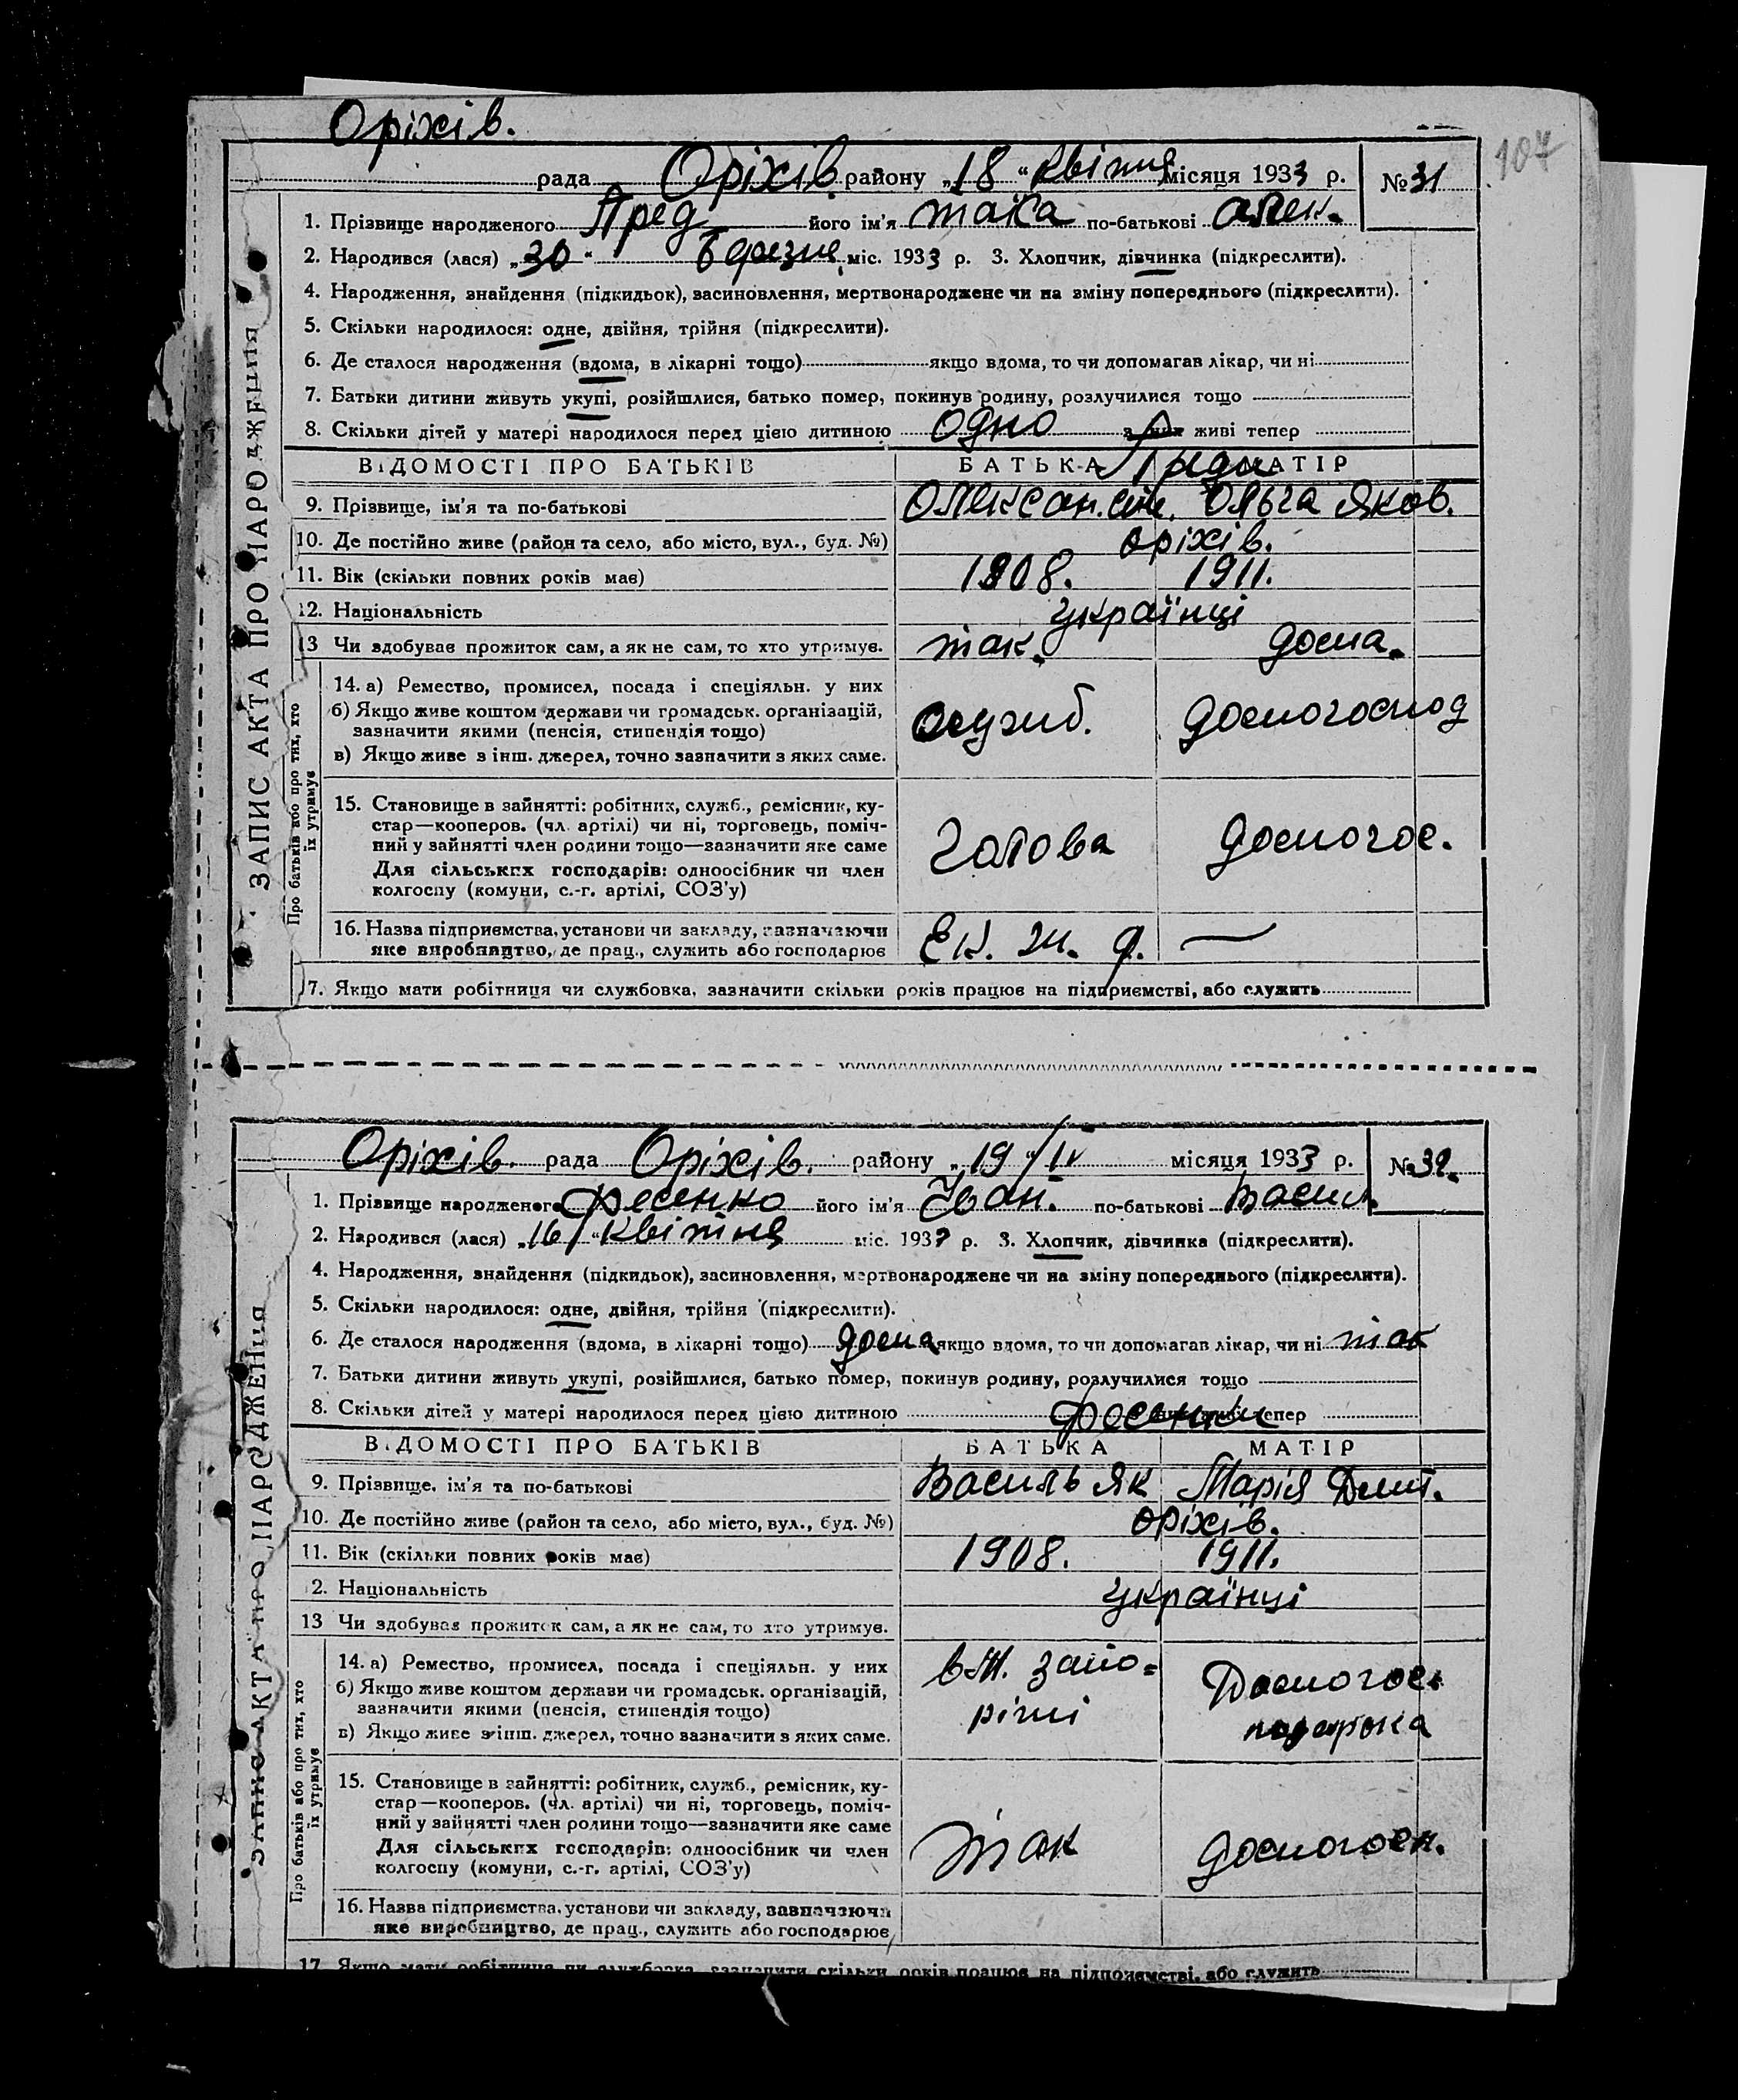 Оріхів.
107
рада Оріхів. району „18“ квітня місяця 1933 р. №31
1. Прізвище народженого Пред його ім'я по-батькові Олек.
2. Народився (лася) „30“ Березня міс. 1933 р. 3. Хлопчик, дівчинка (підкреслити).
4. Народження, знайдення (підкидьок), засиновлення, мертвонароджене чи на зміну попереднього (підкреслити).
5. Скільки народилося: одне, двійня, трійня (підкреслити).
6. Де сталося народження (вдома, в лікарні тощо) якщо вдома, то чи допомагав лікар, чи ні
7. Батьки дитини живуть укупі, розійшлися, батько помер, покинув родину, розлучилися тощо
8. Скільки дітей у матері народилося перед цією дитиною одно з них живі тепер
ВІДОМОСТІ ПРО БАТЬКІВ БАТЬКА МАТІР
9. Прізвище, ім'я та по-батькові Ольга Яков.
10. Де постійно живе (район та село, або місто, вул., буд. №) Оріхів.
11. Вік (скільки повних років має) 1908. 1911.
12. Національність українці
13 Чи здобуває прожиток сам, а як не сам, то хто утримує. так. дома.
ЗАПИС АКТА ПРО НАРОДЖЕННЯ
Про батьків або про тих, хто їх утримує
14. а) Ремество, промисел, посада і спеціяльн. у них
б) Якщо живе коштом держави чи громадськ. організацій,
зазначити якими (пенсія, стипендія тощо) служб. домогоспод
в) Якщо живе з інш. джерел, точно зазначити з яких саме.
15. Становище в зайнятті: робітник, служб., ремісник, ку-
стар—кооперов. (чл. артілі) чи ні, торговець, поміч-
ний у зайнятті член родини тощо—зазначити яке саме Голова домогос.
Для сільських господарів: одноосібник чи член
колгоспу (комуни, с.-г. артілі, СОЗ'у)
16. Назва підприємства, установи чи закладу, зазначаючи
яке виробництво, де прац., служить або господарює —
17. Якщо мати робітниця чи службовка, зазначити скільки років працює на підприємстві, або служить
Оріхів. рада Оріхів. району „19“ IV місяця 1933 р. №32.
1. Прізвище народженого Фесенко його ім'я Іван. по-батькові Васил.
2. Народився (лася) „16“ квітня міс. 1933 р. 3. Хлопчик, дівчинка (підкреслити).
4. Народження, знайдення (підкидьок), засиновлення, мертвонароджене чи на зміну попереднього (підкреслити).
5. Скільки народилося: одне, двійня, трійня (підкреслити).
6. Де сталося народження (вдома, в лікарні тощо) дома якщо вдома, то чи допомагав лікар, чи ні так
7. Батьки дитини живуть укупі, розійшлися, батько помер, покинув родину, розлучилися тощо
8. Скільки дітей у матері народилося перед цією дитиною тепер
Фесенки
ВІДОМОСТІ ПРО БАТЬКІВ БАТЬКА МАТІР
9. Прізвище, ім'я та по-батькові Василь Як Марія Дмит.
10. Де постійно живе (район та село, або місто, вул., буд. №) Оріхів.
11. Вік (скільки повних років має) 1908. 1911.
12. Національність українці
13 Чи здобуває прожиток сам, а як не сам, то хто утримує.
ЗАПИС АКТА ПРО НАРОДЖЕННЯ
Про батьків або про тих, хто їх утримує
14. а) Ремество, промисел, посада і спеціяльн. у них
б) Якщо живе коштом держави чи громадськ. організацій,
зазначити якими (пенсія, стипендія тощо)
в) Якщо живе з інш. джерел, точно зазначити з яких саме.
15. Становище в зайнятті: робітник, служб., ремісник, ку-
стар—кооперов. (чл. артілі) чи ні, торговець, поміч-
ний у зайнятті член родини тощо—зазначити яке саме
Для сільських господарів: одноосібник чи член так домогосп.
колгоспу (комуни, с.-г. артілі, СОЗ'у)
16. Назва підприємства, установи чи закладу, зазначаючи
яке виробництво, де прац., служить або господарює
17. Якщо мати робітниця чи службовка, зазначити скільки років працює на підприємстві, або служить